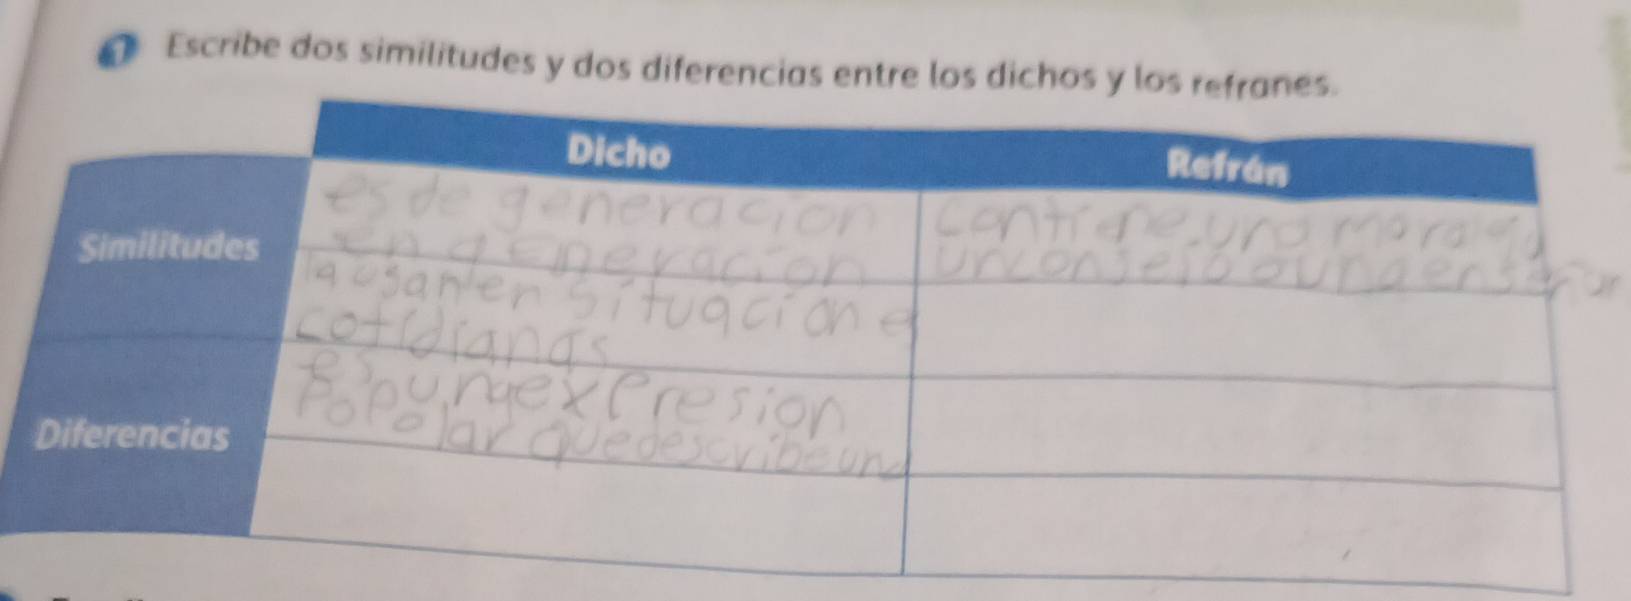 1 Escribe dos similitudes y dos diferencias entre los dichos y los refranes.
Dicho
Refrán
Similitudes
es de generacion
en generacion
la usan en situacione
cotidianas
contiene una moraleja
un consejo o una enseñanza
Diferencias
es
una expresion
popolar que describe un